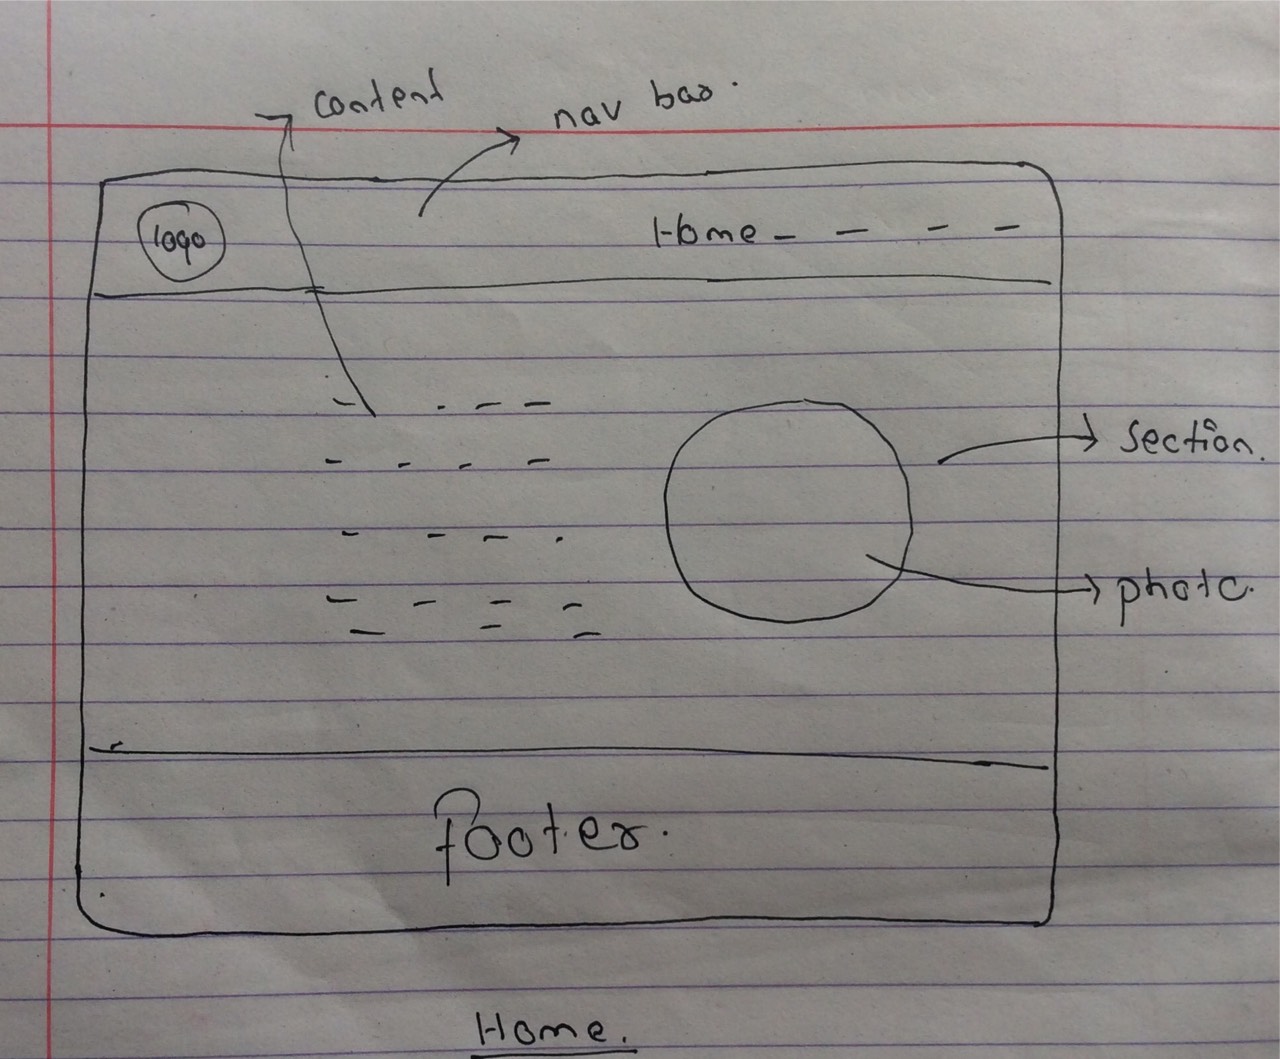 content
nav bar.
logo
Home - - - -
section.
photo.
footer.
Home.